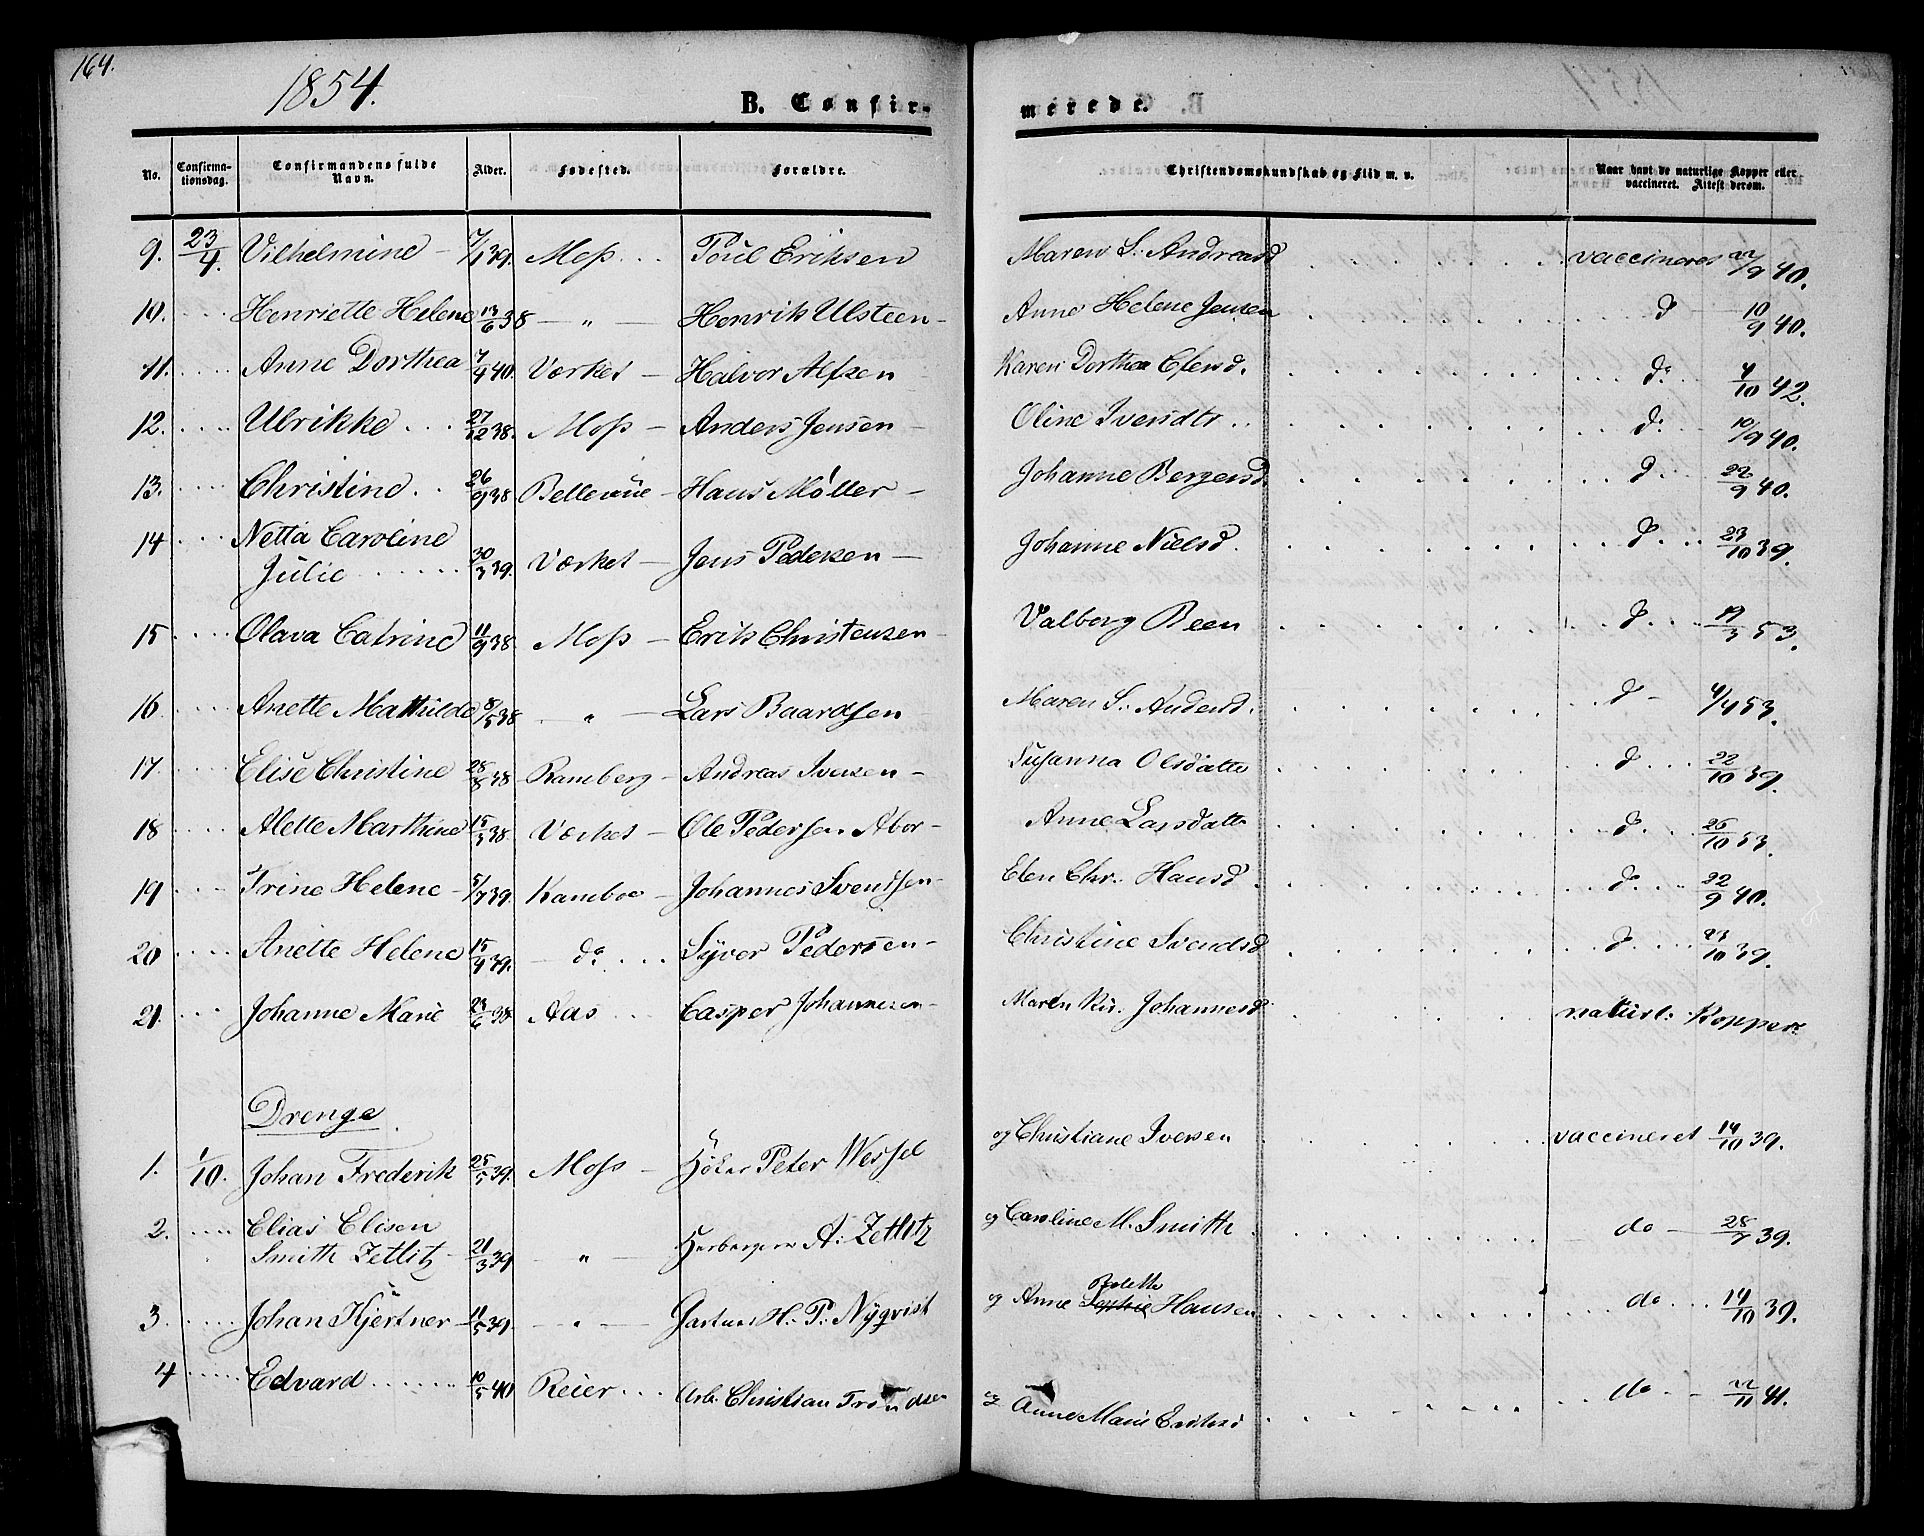 164.
1854.
B. Confirmerede.
No. Confirmationsdag. Confirmandens fulde Navn. Alder. Fødested. Forældre. Christendomskundskab og Flid m. v. Naar havt de naturlige Kopper eller vaccineret. Attest derom.
9. 23/4. Vilhelmine - 7/1 39. Moss . . . Poul Eriksen Maren S. Andreasd vaccineret 22/9 40.
10. Henriette Helene 13/6 38 - " - Henrik Ulsteen - Anne Helene Jensen d 10/9 40.
11. Anne Dorthea 7/4 40. Værket - Halvor Alfsen Karen Dorthea Efensd. do. 4/10 42.
12. Ulrikke 27/12 38. Moss - Anders Jensen - Oline Iversdtr d. 10/9 40.
13. Christine 26/9 38 Bellevue - Hans Møller - Johanne Bergersd. d 22/9 40.
14 Netta Caroline
Julie 30/3 39. Værket - Jens Pedersen - Johanne Nielsd. d. 23/10 39.
15 Olava Catrine 11/9 38 Moss - Erik Christensen - Valborg Been d. 19/3 53.
16 Anette Mathilde 8/5 38 - " - Lars Baardsen Maren S. Andersd. d - 4/4 53.
17 Elise Christine 28/8 38 Ramberg - Andreas Iversen - Susanna Olsdatte d 22/10 39.
18 Alette Marthine 15/3 38. Værket - Ole Pedersen Abor- Anne Larsdatte d. 26/10 53.
19 Trine Helene - 5/7 39. Kamboe - Johannes Svendsen - Elen Chr. Hansd. do 22/9 40.
20 Anette Helene 15/4 39. - do. . . . Syver Pedersen - Christine Svendsd d. 23/10 39.
21. Johanne Marie 23/6 38 Aas Casper Johannesen - Maren Kir. Johannesd naturl: Kopper
Drenge.
1. 1/10. Johan Frederik 25/5 39. Moss - Høker Peter Wessel og Christiane Iversen vaccineret 14/10 39.
2. Elias Elisen
Smith Zetlitz - 21/3 39 " - A: Zetlitz og Caroline M. Smith do - 28/7 39.
3. Johan Kjertner - 11/5 39. - " - Gartner H. P. Nyqvist og Anne Sophie Bolette Hansen do 14/10 39.
4 Edvard 10/5 40 Reier . . . Arb. Christian Trondsen og Anne Marie do - 22/11 41.